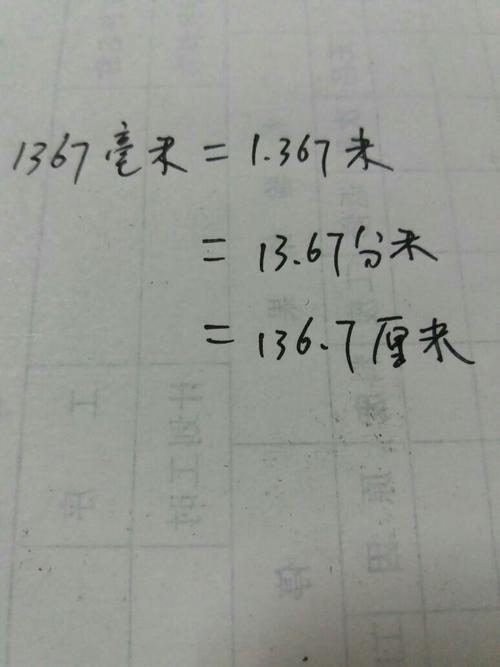 1367毫米=1.367米
=13.67分米
=136.7厘米